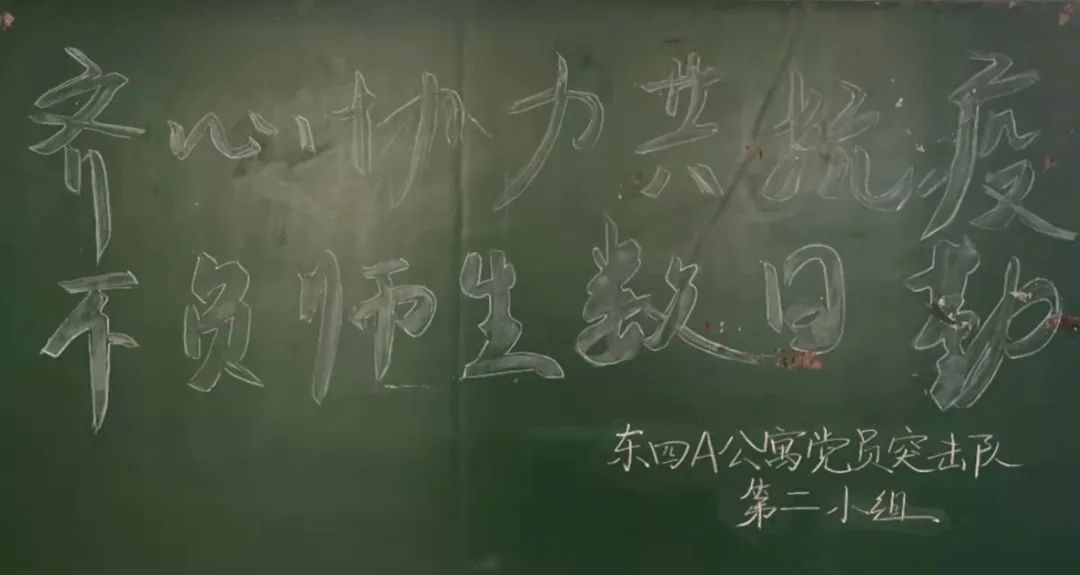 齐心协力共抗疫
不员师生数日勤
东四A公寓党员突击队
第二小组